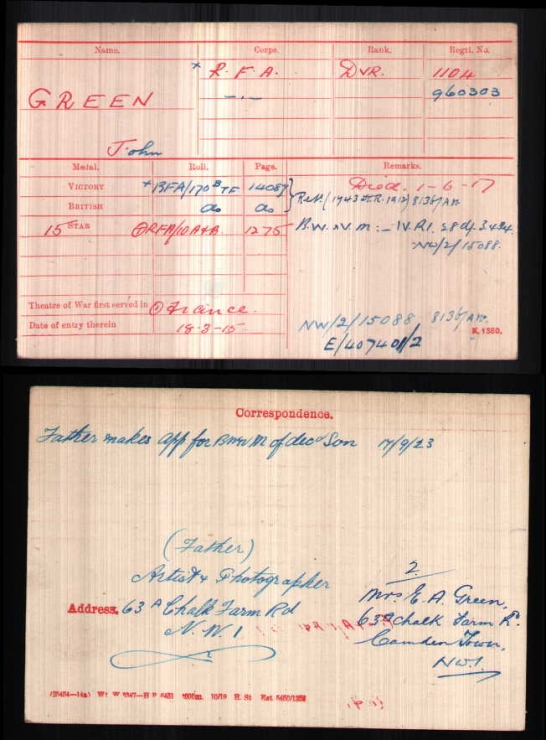 Name. Corps. Rank. Regtl. No.
GREEN × R. F. A. DVR. 1104
—.— 960303
John
Medal. Roll. Page. Remarks.
VICTORY × RFA/170B TF 14089 Died. 1-6-17
BRITISH do do
15 STAR ⊙RFA/10A&B 1275 B.W. & V.M:- IV.R1. 3434
NW/2/15088.
Theatre of War first served in ⊙ France.
Date of entry therein 18-3-15.
NW/2/15088 8136/AR.
K. 1380.
E/40740/1/2
Correspondence.
Father makes app for BW&VM of decd Son 7/9/23
(Father)
Artist & Photographer
Address. 63A Chalk Farm Rd
N.W.1
2
Mrs E. A. Green,
63A Chalk Farm Rd.
Camden Town,
NW1